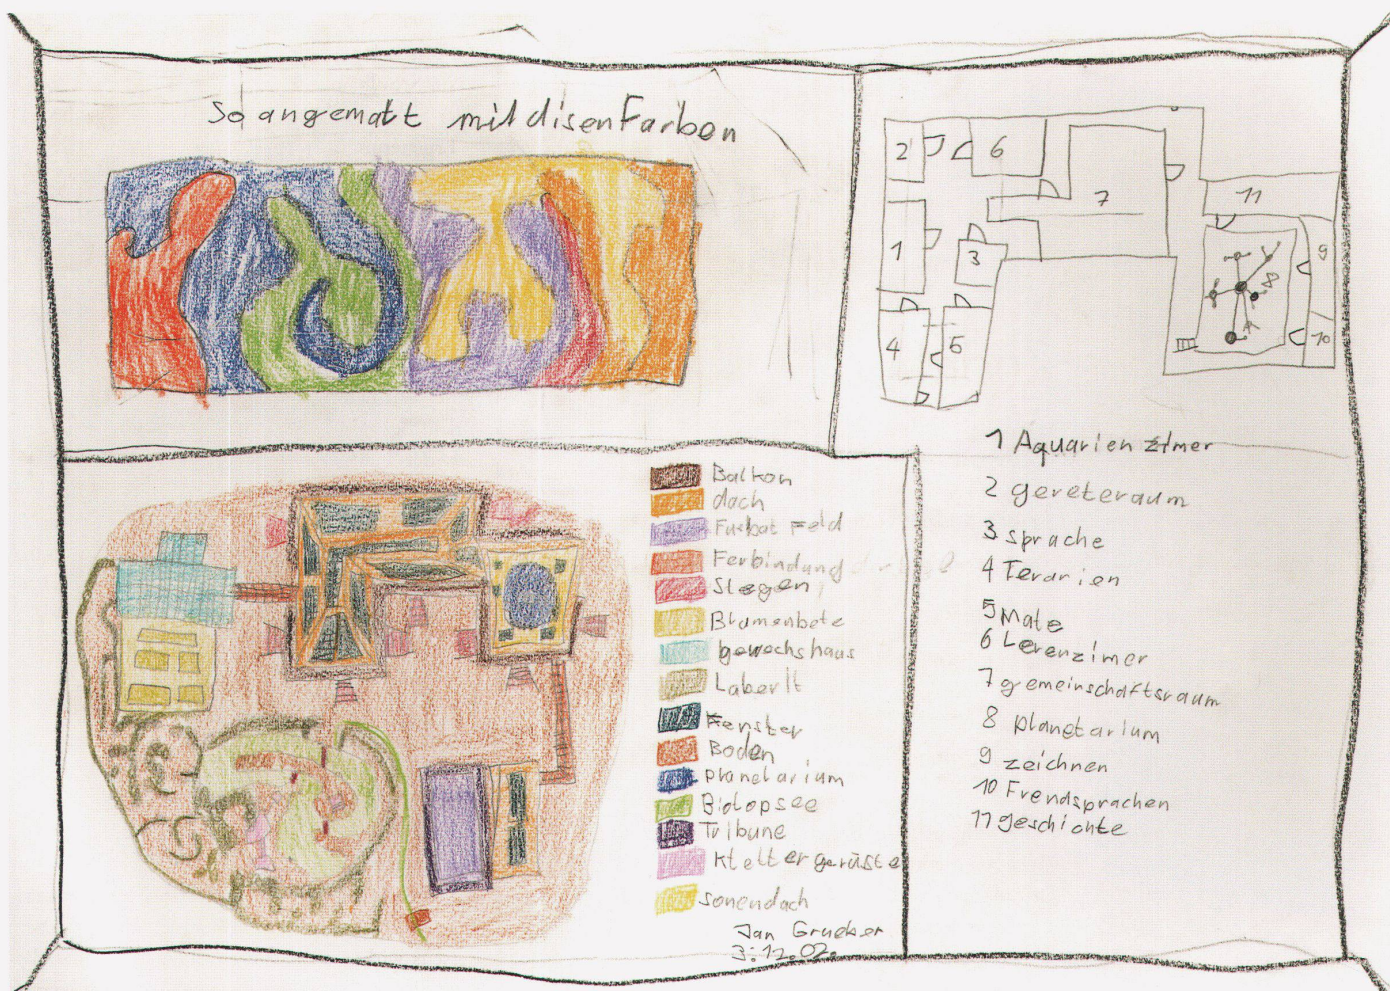 So angemalt mit disen Farben
2
6
7
11
1
3
9
4
5
10
Balkon
dach
Fußbal Feld
Ferbindung
Stegen
Blumenbete
gewechshaus
Laberlt
Fenster
Boden
planetarium
Biotopsee
Tribune
klettergerüste
sonendach
Jan Grueber
3.12.02.
1 Aquarien zimer
2 gereteraum
3 sprache
4 Terarien
5 Mate
6 Lerenzimer
7 gemeinschaftsraum
8 planetarium
9 zeichnen
10 Fremdsprachen
11 geschichte